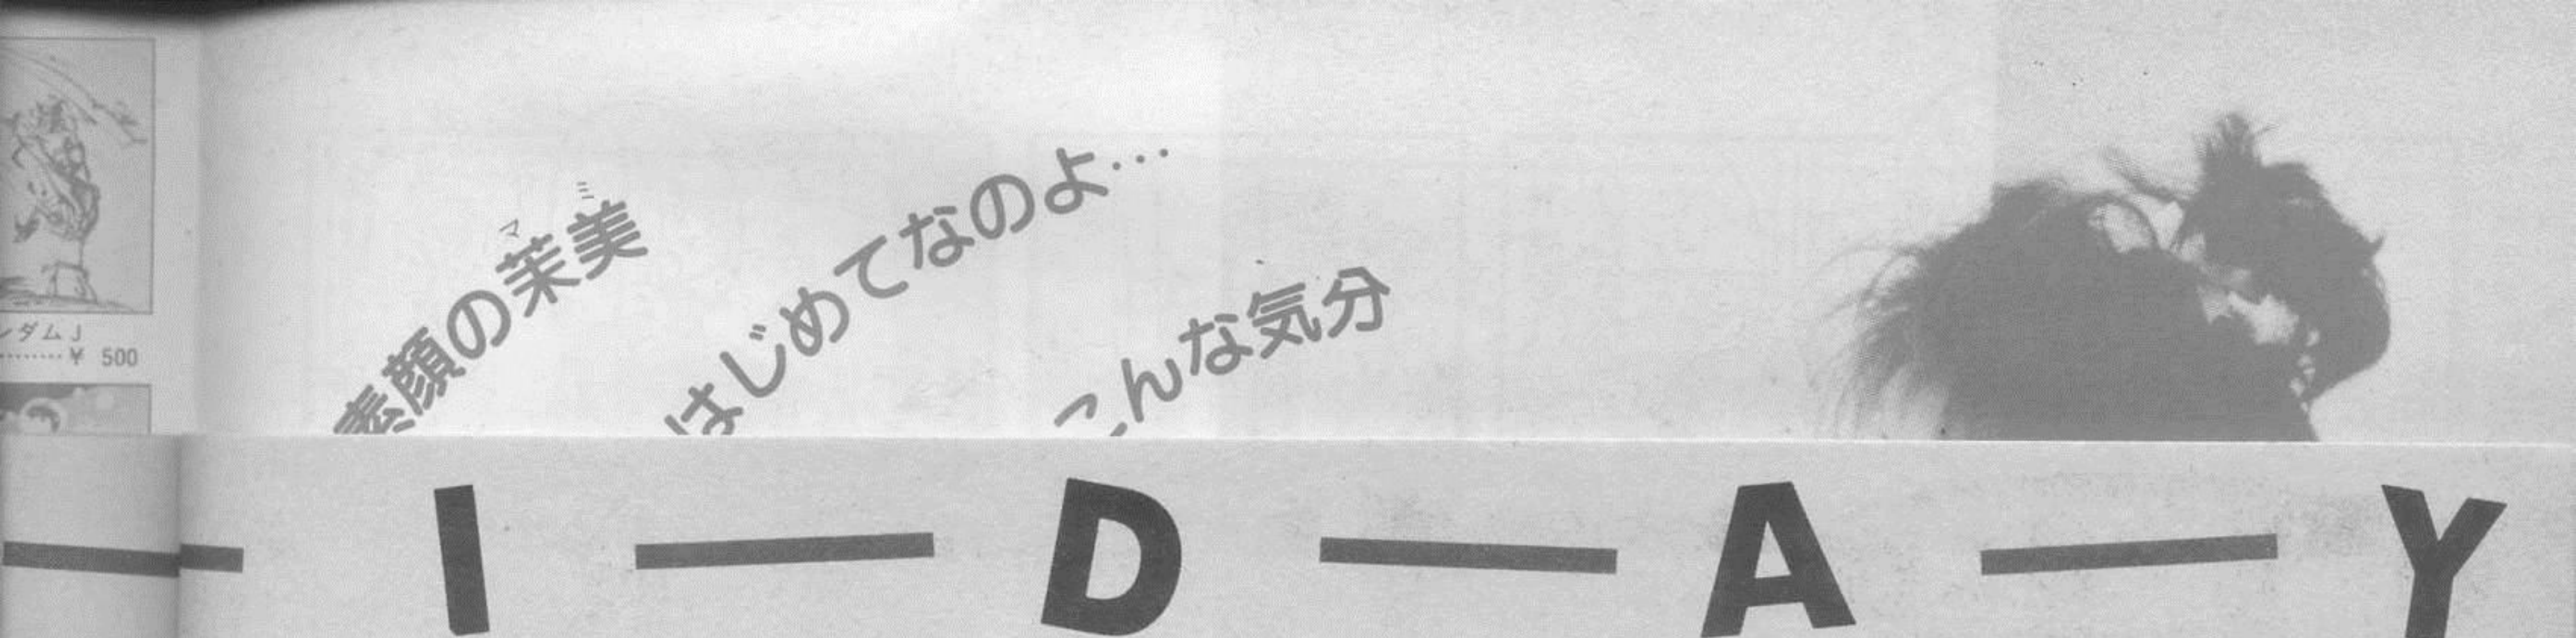 ンダムJ
……¥ 500
素顔の茉美
マミ
はじめてなのよ…
こんな気分
— I — D — A — Y